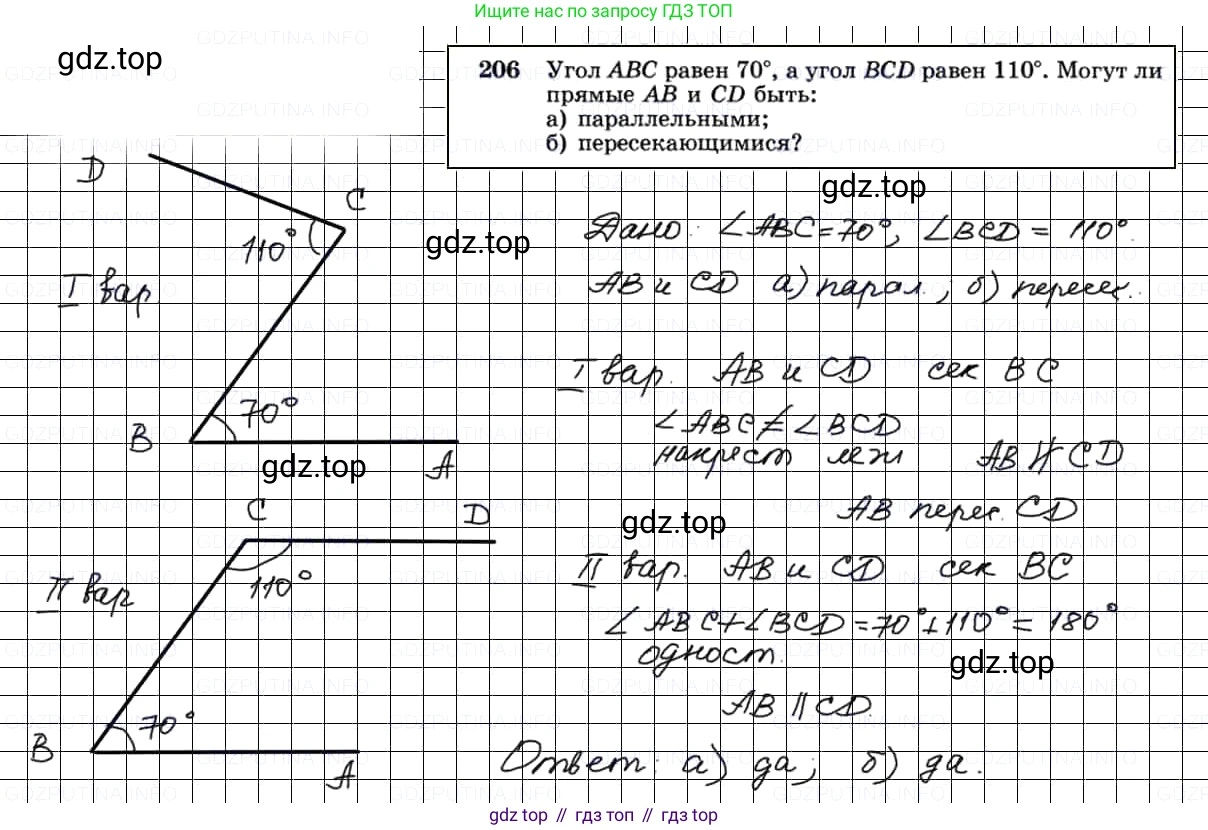 Ищите нас по запросу ГДЗ ТОП
gdz.top
206 Угол ABC равен 70°, а угол BCD равен 110°. Могут ли
прямые AB и CD быть:
а) параллельными;
б) пересекающимися?
gdz.top
D
C
110°
gdz.top
I вар.
70°
B
A
gdz.top
Дано: ∠ABC = 70°, ∠BCD = 110°.
AB и CD а) парал.; б) пересек.
I вар. AB и CD сек BC
∠ABC ≠ ∠BCD
накрест леж AB ∦ CD
AB перес. CD
gdz.top
C
D
110°
II вар
70°
B
A
II вар. AB и CD сек BC
∠ABC+∠BCD = 70°+110° = 180°
одност.
gdz.top
AB || CD.
Ответ: а) да; б) да.
gdz top // гдз топ // gdz.top
GDZPUTINA.INFO